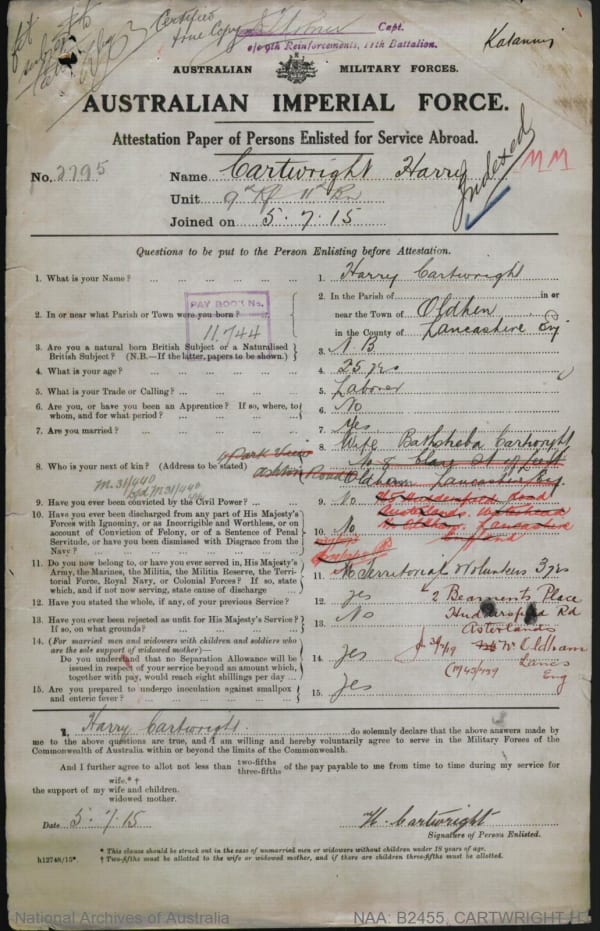 Certified
true Copy
Capt.
o/c 9th Reinforcements, 11th Battalion.
Katanning
AUSTRALIAN MILITARY FORCES.
AUSTRALIAN IMPERIAL FORCE.
Attestation Paper of Persons Enlisted for Service Abroad.
No. 2795
Name Cartwright Harry
Indexed
MM
Unit 9th Rf 11th Bn
Joined on 5.7.15
Questions to be put to the Person Enlisting before Attestation.
1. What is your Name? ... 1. Harry Cartwright
PAY BOOK No.
11.744
2. In or near what Parish or Town were you born? ... 2. In the Parish of in or
near the Town of Oldhen
in the County of Lancashire Eng
3. Are you a natural born British Subject or a Naturalised
British Subject? (N.B.—If the latter, papers to be shown.) 3. N.B
4. What is your age? ... 4. 25 yrs
5. What is your Trade or Calling? ... 5. Laborer
6. Are you, or have you been an Apprentice? If so, where, to
whom, and for what period? ... 6. No
7. Are you married? ... 7. Yes
8. Who is your next of kin? (Address to be stated) 8. Wife Bathsheba Cartwright
4 Park View
Ashton Road Oldham Lancashire Eng.
M.31/440
9. Have you ever been convicted by the Civil Power? ... 9. No
10. Have you ever been discharged from any part of His Majesty's
Forces with Ignominy, or as Incorrigible and Worthless, or on
account of Conviction of Felony, or of a Sentence of Penal
Servitude, or have you been dismissed with Disgrace from the
Navy? ... 10. No
Oldham, Lancashire
England
11. Do you now belong to, or have you ever served in, His Majesty's
Army, the Marines, the Militia, the Militia Reserve, the Terri-
torial Force, Royal Navy, or Colonial Forces? If so, state
which, and if not now serving, state cause of discharge 11. Territorial Volunteers 3 yrs
12. Have you stated the whole, if any, of your previous Service? 12. yes
2 Bearments Place
13. Have you ever been rejected as unfit for His Majesty's Service?
If so, on what grounds? ... 13. No
Huddersfield Rd
Austerlands
14. (For married men and widowers with children and soldiers who
are the sole support of widowed mother)—
Do you understand that no Separation Allowance will be
issued in respect of your service beyond an amount which,
together with pay, would reach eight shillings per day ... 14. yes
Nr Oldham
Lancs
Eng
15. Are you prepared to undergo inoculation against smallpox
and enteric fever? ... 15. yes
I, Harry Cartwright do solemnly declare that the above answers made by
me to the above questions are true, and I am willing and hereby voluntarily agree to serve in the Military Forces of the
Commonwealth of Australia within or beyond the limits of the Commonwealth.
And I further agree to allot not less than two-fifths
three-fifths of the pay payable to me from time to time during my service for
wife.*†
the support of my wife and children.
widowed mother.
Date 5.7.15
H. Cartwright
Signature of Person Enlisted.
* This clause should be struck out in the case of unmarried men or widowers without children under 18 years of age.
h12748/15". † Two-fifths must be allotted to the wife or widowed mother, and if there are children three-fifths must be allotted.
National Archives of Australia
NAA: B2455, CARTWRIGHT H